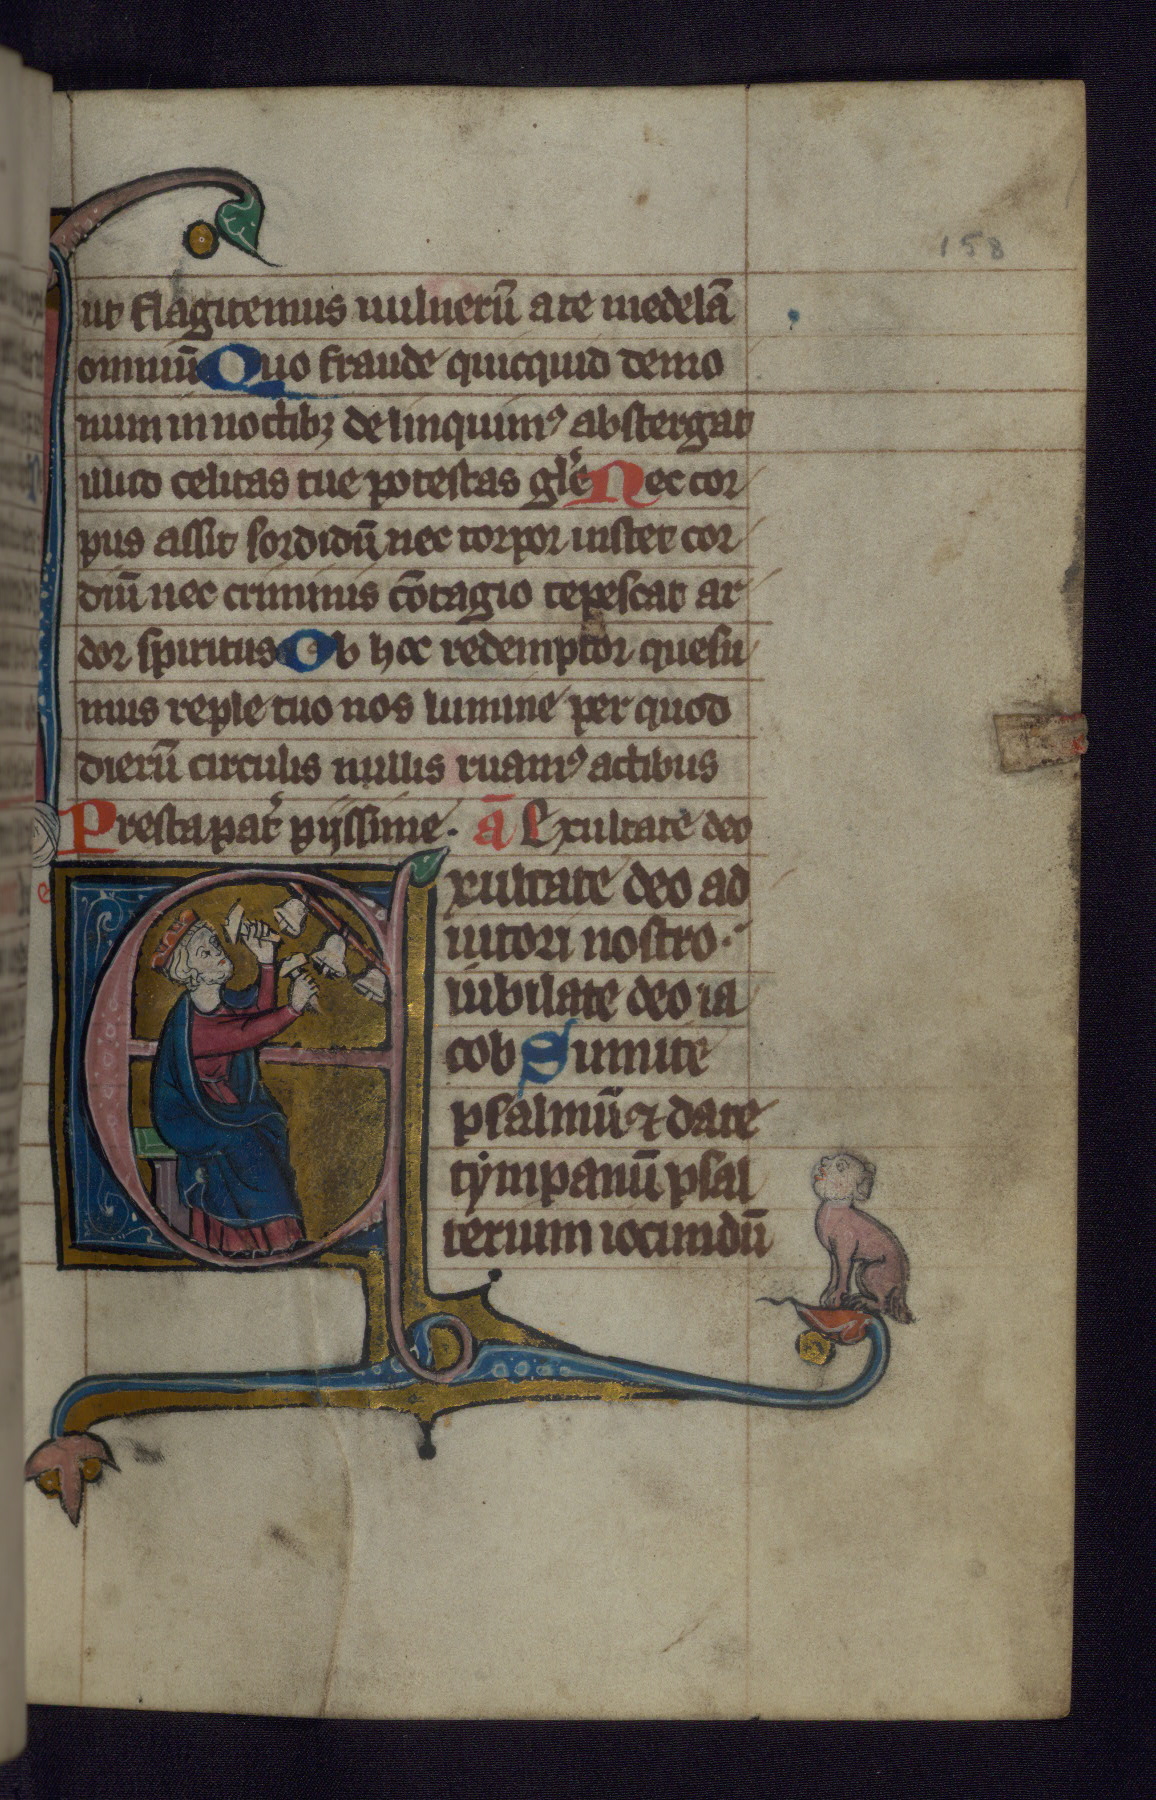 158
ut flagitemus uulnerū a te medelā
omniū Quo fraude quicquid demo
num in noctibꝫ delinquimꝰ abstergat
illud celitas tue potestas gl̄e Nec cor
pus assit sordidū nec torpor instet cor
diū nec criminis cōtagio tepescat ar
dor spiritus Ob hoc redemptor quesu
mus reple tuo nos lumine per quod
dierū circulis nullis ruamꝰ actibus
Presta pat̄ piissime. ā Exultate deo
Exultate deo ad
iutori nostro.
iubilate deo ia
cob Sumite
psalmū ⁊ date
tympanū psal
terium iocundū